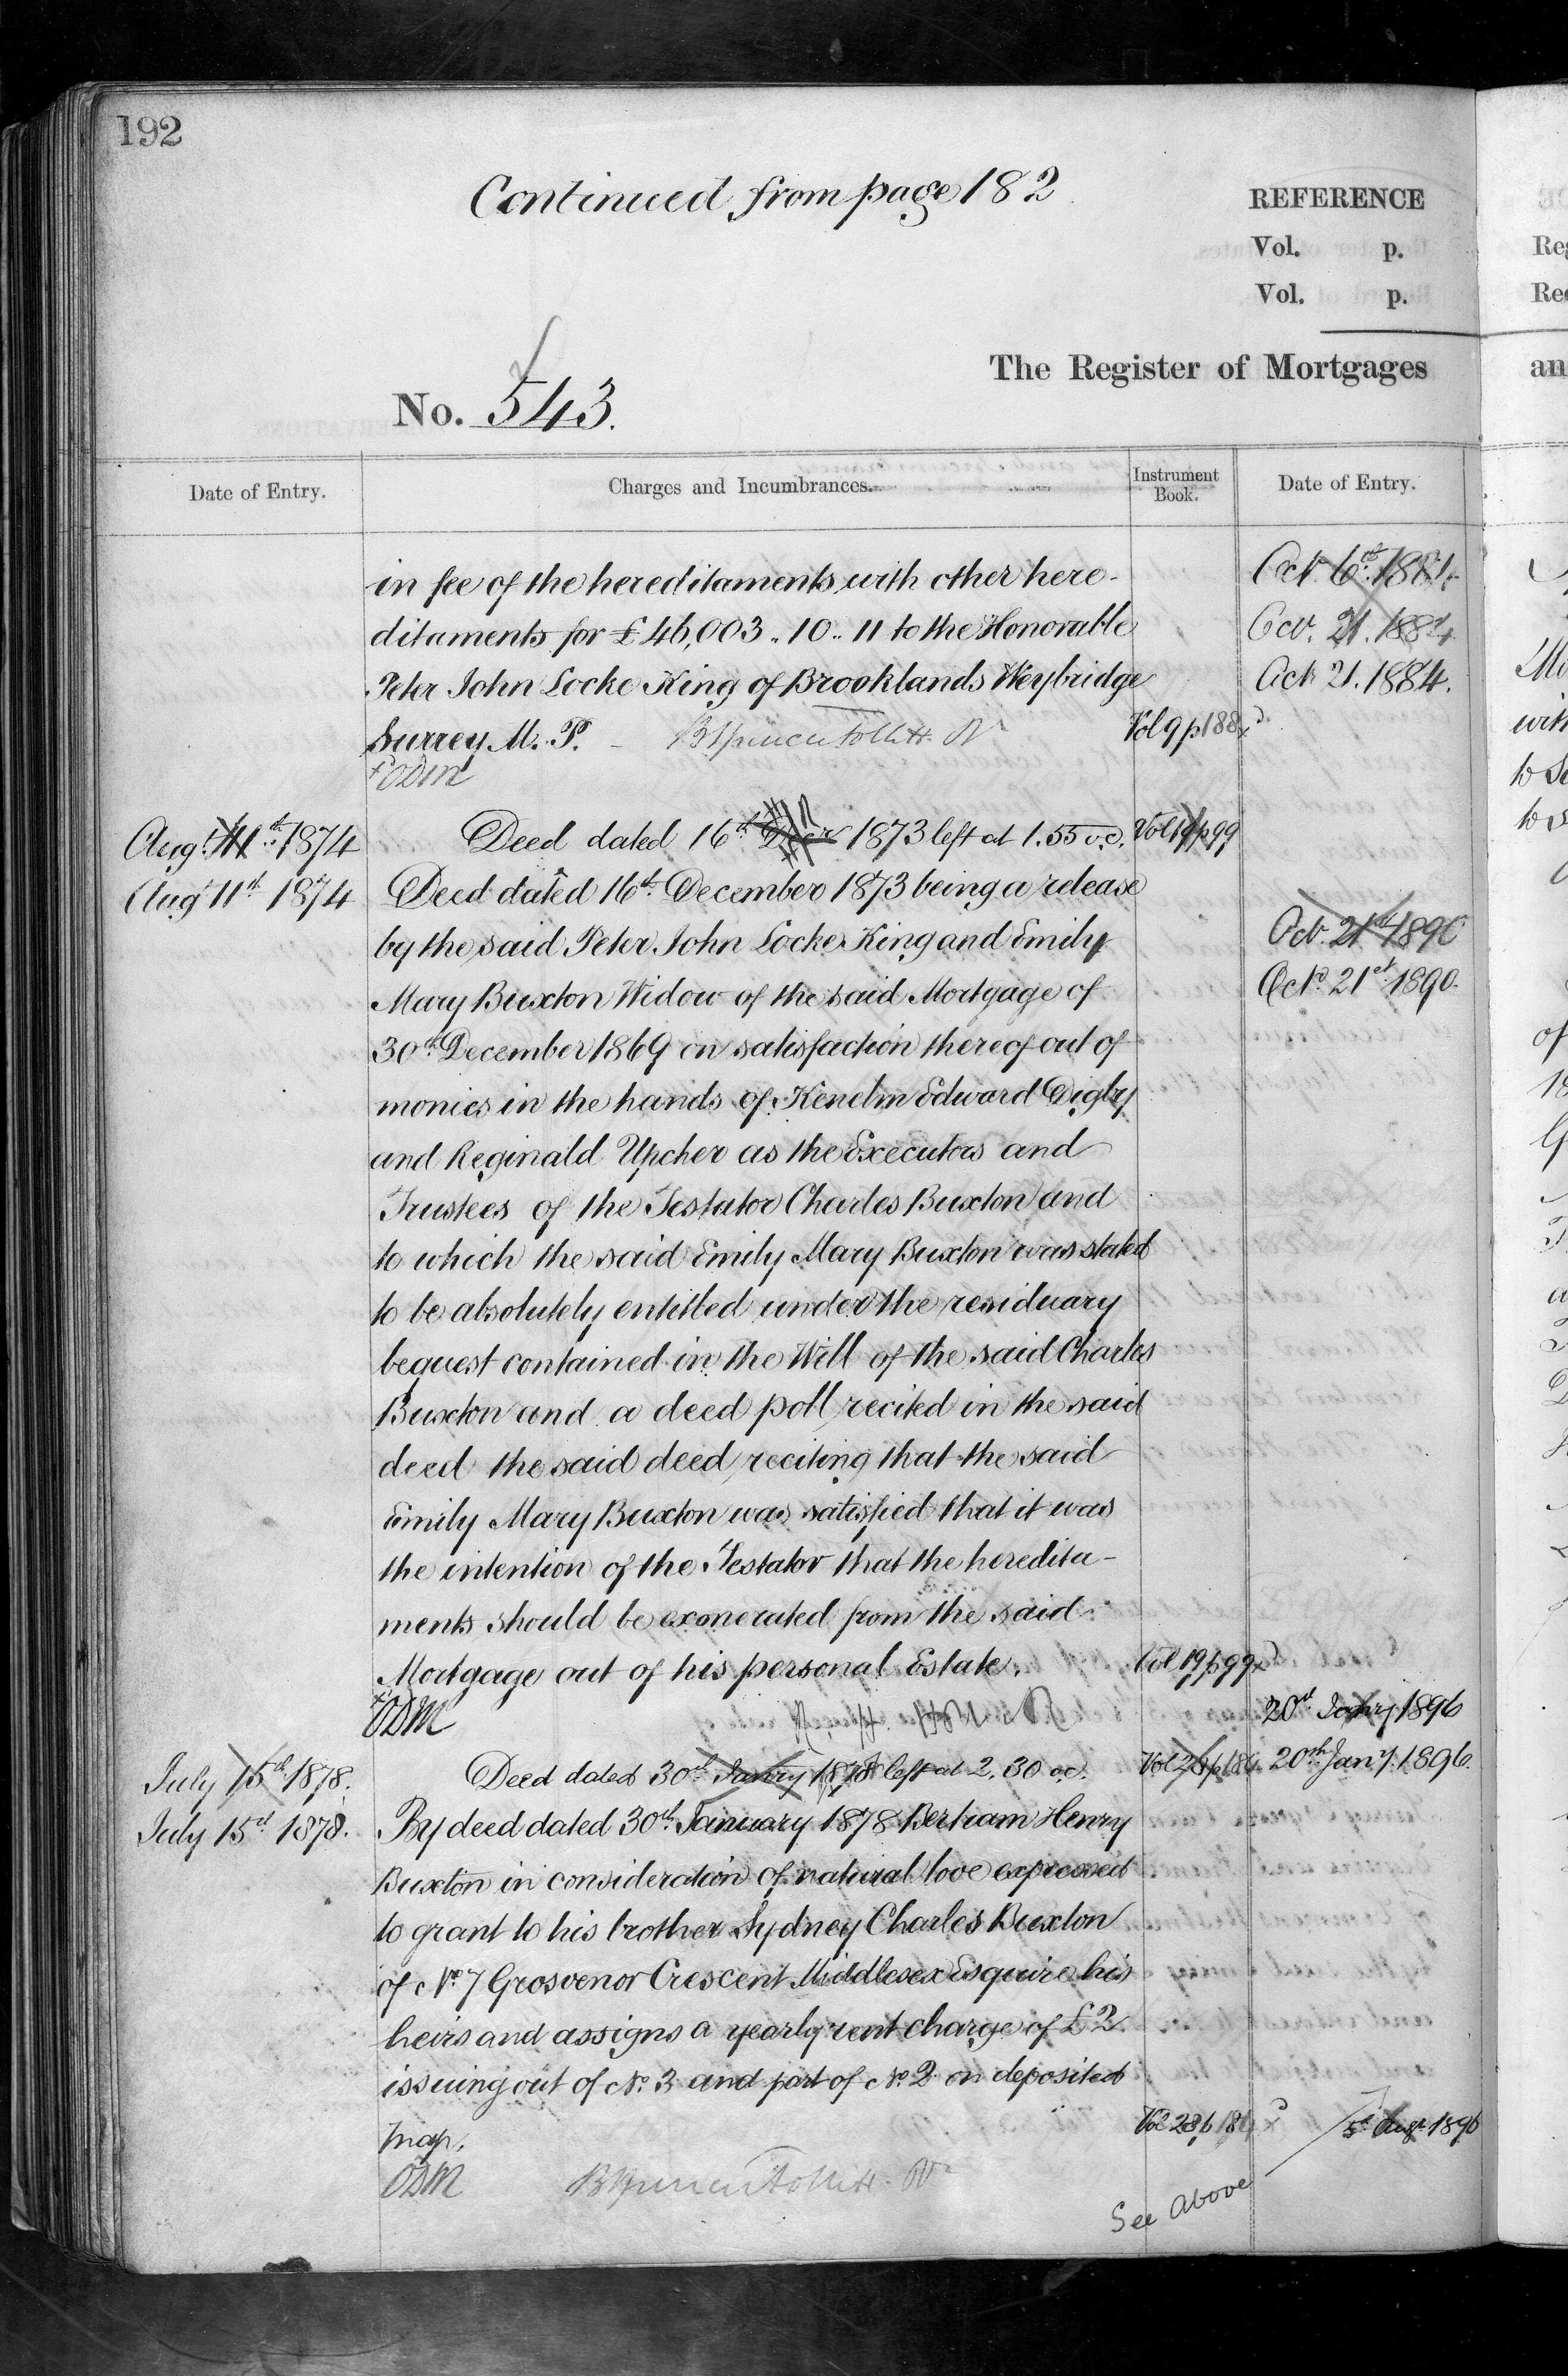 192
Continued from page 182
REFERENCE
Vol. p.
Vol. p.
The Register of Mortgages
No. 543.
Date of Entry.
Charges and Incumbrances.
Instrument Book.
Date of Entry.
in fee of the hereditaments with other here-
ditaments for £46,003 .. 10 .. 11 to the Honorable
Peter John Locke King of Brooklands Weybridge
Surrey M. P.
Vol 9 p 188
ODM
Oct. 6th. 1884
Oct. 21. 1884
Oct. 21. 1884.
Augt. 11th. 1874
Deed dated 16th Decr 1873 left at 1.55 o.c.
Vol 19 p 99
Augt 11th 1874
Deed dated 16th. December 1873 being a release
by the said Peter John Locke King and Emily
Mary Buxton Widow of the said Mortgage of
30th. December 1869 on satisfaction thereof out of
monies in the hands of Kenelm Edward Digby
and Reginald Upcher as the Executors and
Trustees of the Testator Charles Buxton and
to which the said Emily Mary Buxton was stated
to be absolutely entitled under the residuary
bequest contained in the Will of the said Charles
Buxton and a deed poll recited in the said
deed the said deed reciting that the said
Emily Mary Buxton was satisfied that it was
the intention of the Testator that the heredita-
ments should be exonerated from the said
Mortgage out of his personal Estate.
Vol 19 p 99
ODM
Oct. 21st 1890
Oct. 21st 1890.
20th Janry 1896
July 15th 1878.
Deed dated 30th Janry 1878 left at 2.30 oc.
20th Jany. 1896.
July 15th 1878.
By deed dated 30th January 1878 Bertram Henry
Buxton in consideration of natural love expressed
to grant to his brother Sydney Charles Buxton
of No. 7 Grosvenor Crescent Middlesex Esquire his
heirs and assigns a yearly rent charge of £2
issuing out of No. 3 and part of No. 2 on deposited
map.
Vol 28 p 184
5th Augt 1896
ODM
See above